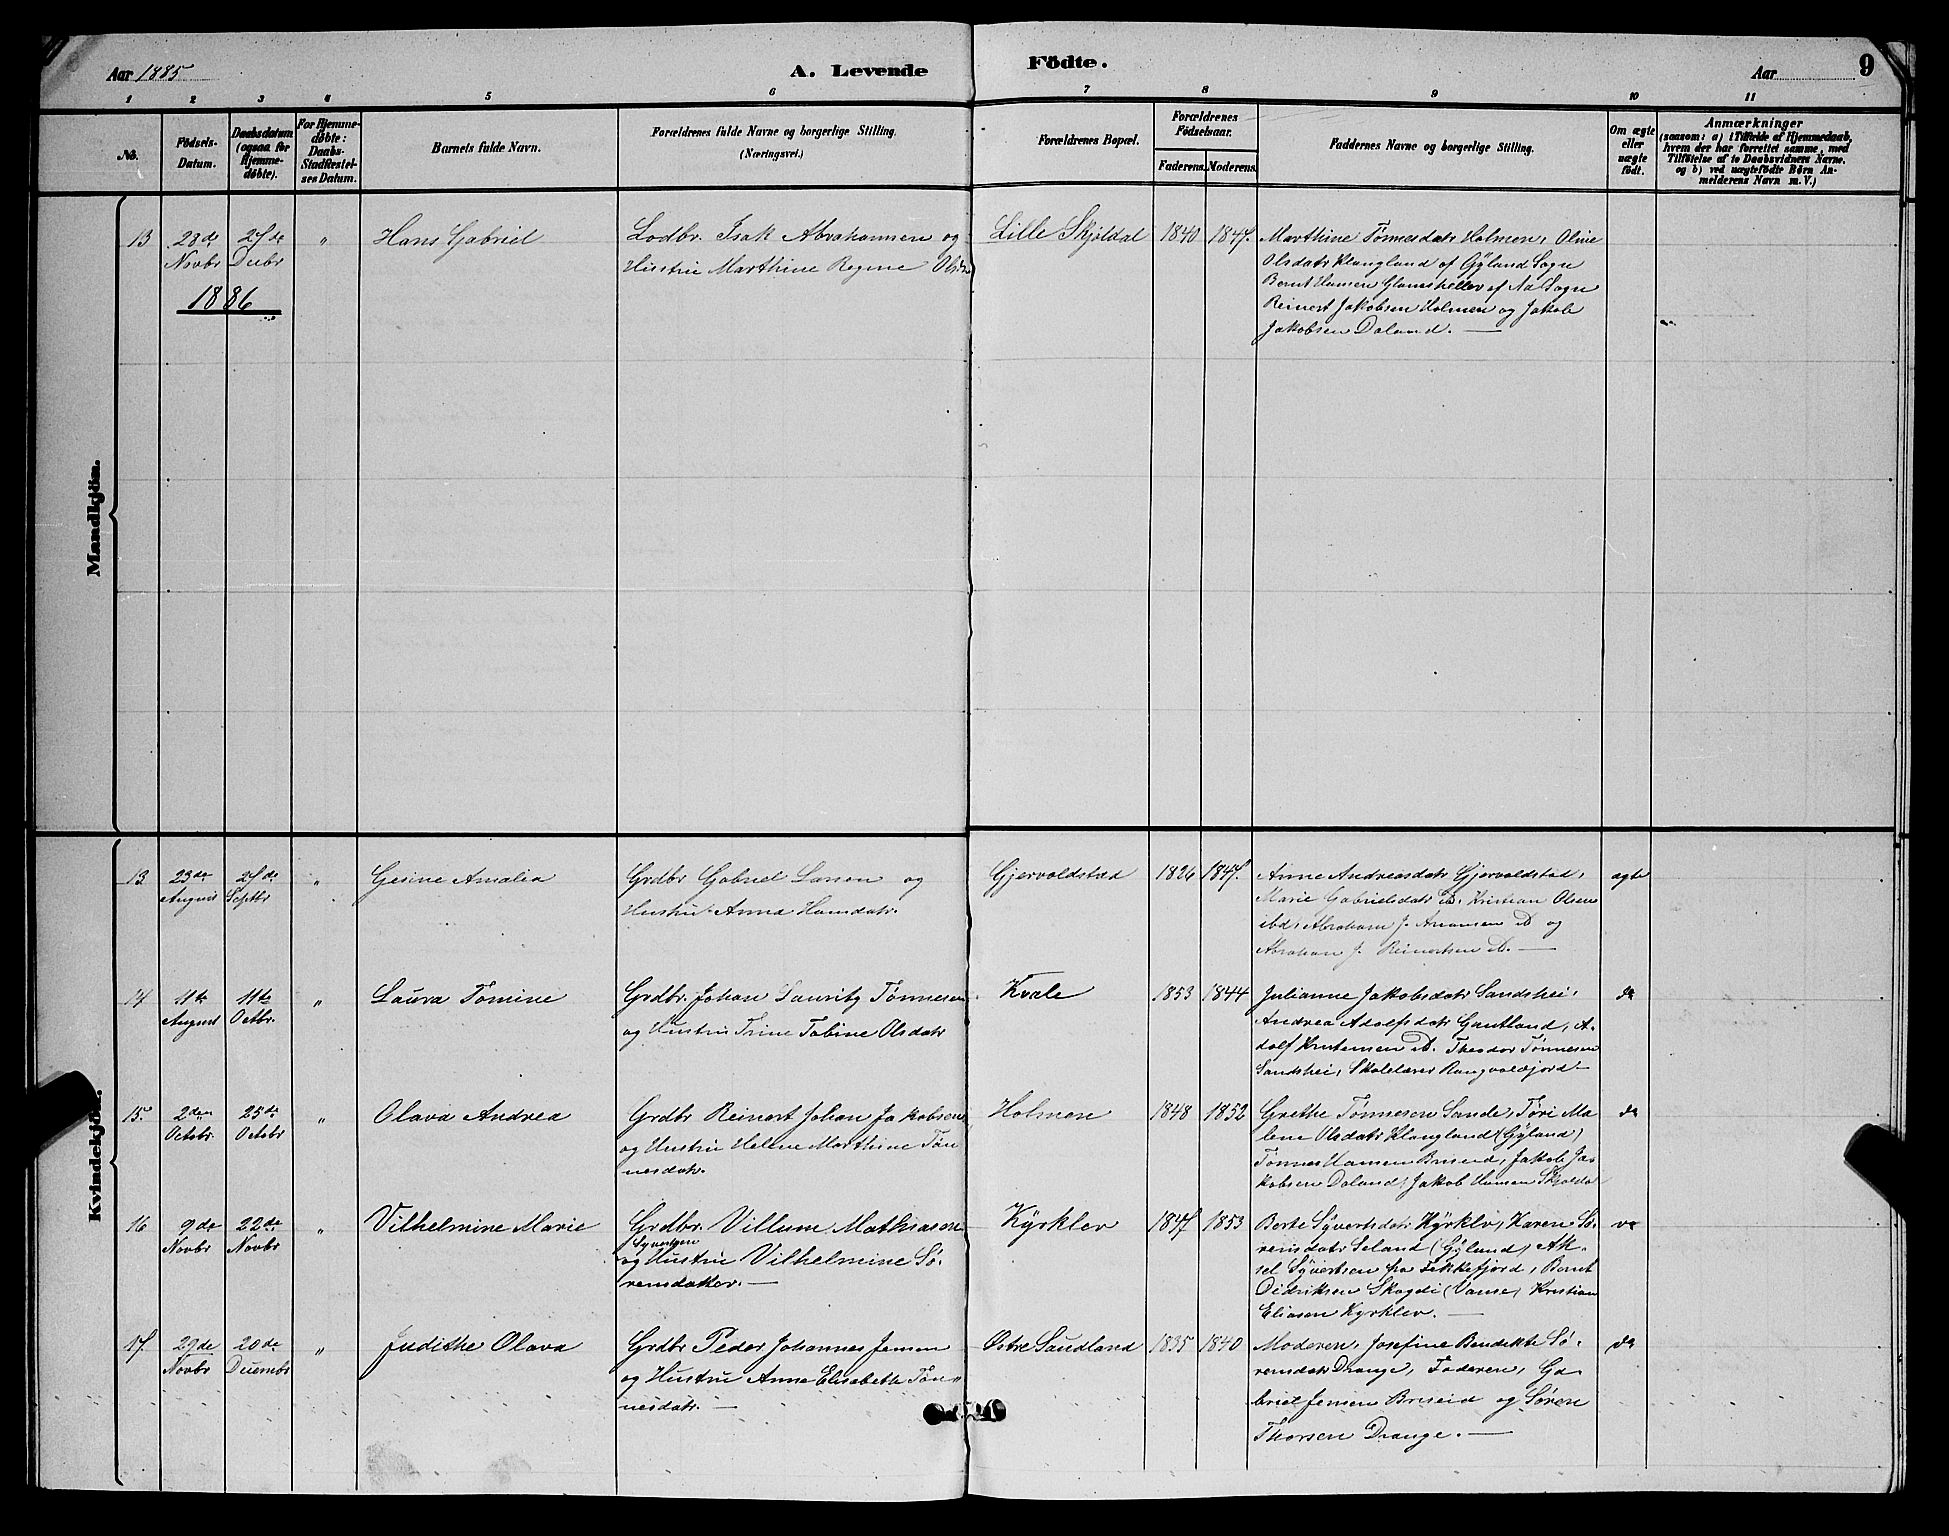 Aar 1885
A. Levende
Födte.
Aar
9
1 2 3 4 5 6 7 8 9 10 11
No.
Födsels-Datum.
Daabsdatum (ogsaa for Hjemmedöbte).
For Hjemmedöbte: Daabs-Stadfæstelses Datum.
Barnets fulde Navn.
Forældrenes fulde Navne og borgerlige Stilling.
(Næringsvei.)
Forældrenes Bopæl.
Forældrenes Födselsaar.
Faderens. Moderens.
Faddernes Navne og borgerlige Stilling.
Om ægte eller uægte födt.
Anmærkninger
(saasom: a) i Tilfælde af Hjemmedaab,
hvem der har forrettet samme, med
Tilföielse af to Daabsvidners Navne.
og b) ved uægtefödte Börn An-
melderens Navn m. V.)
Mandkjön.
13 28de Novbr 27de Decbr " Hans Gabriel
Lodbr. Isak Abrahamsen og
Hustru Marthine Regine Olsdr
Lille Skjoldal 1840 1847.
Marthine Tønnesdatr Holmen, Oline
Olsdatr Klungland af Gyland Sogn
Bernt Hansen Glamsheller af Aa Sogn
Reinert Jakobsen Holmen og Jakob
Jakobsen Daland. —
1886
Kvindekjön.
13 23de August 27de Septbr " Gesine Amalia
Grdbr Gabriel Larsen og
Hustru Anna Hansdatr.
Gjervoldstad 1826 1847.
Anne Andreasdatr Gjervoldstad,
Marie Gabrielsdatr ib. Kristian Olsen
ibd, Abraham J. ib og
Abraham J. Reinertsen ib. —
ægte
14 11te August 11te Octbr. " Laura Tomine
Grdbr. Johan Lauritz Tønnesen
og Hustru Trine Tobine Olsdatr
Kvale 1853 1844
Julianne Jakobsdatr Sandshei,
Andrea Adolfsdatr Gautland, A-
dolf Knutsen ib. Theodor Tønnesen
Sandshei, Skolelærer Rangvaldfjord —
do
15. 2den Octobr. 25de Octobr " Olava Andrea
Grdbr Reinert Johan Jakobsen
og Hustru Helene Marthine Tøn
nesdatr.
Holmen 1848 1852
Grethe Tønnesen Sande, Tøri Ma
lene Olsdatr Klungland (Gyland)
Tønnes Hansen Briseid, Jakob Ja-
kobsen Daland, Jakob Hansen Skjoldal
do
16 9de Novbr 22de Novbr " Vilhelmine Marie
Grdbr. Villum Mathiasen
Syvertsen
og Hustru Vilhelmine Sø-
rensdatter. —
Kyrklev 1847 1853
Berte Syvertsdatr Kyrklev, Karen Sø-
rensdatr Seland (Gyland) Ak-
sel Syvertsen fra Fekkefjord, Bernt
Didriksen Skogdi (Vanse) Kristian
Eliasen Kyrklev. —
17. 29de Novbr 20de Decembr " Judithe Olava
Grdbr Peder Johannes Jensen
og Hustru Anna Elisabeth Tøn-
nesdatr. —
Østre Saudland 1835 1840
Moderen, Josefine Bendikte Sø-
rensdatr Drange, Faderen, Ga-
briel Jensen Briseid og Søren
Thorsen Drange. —
do